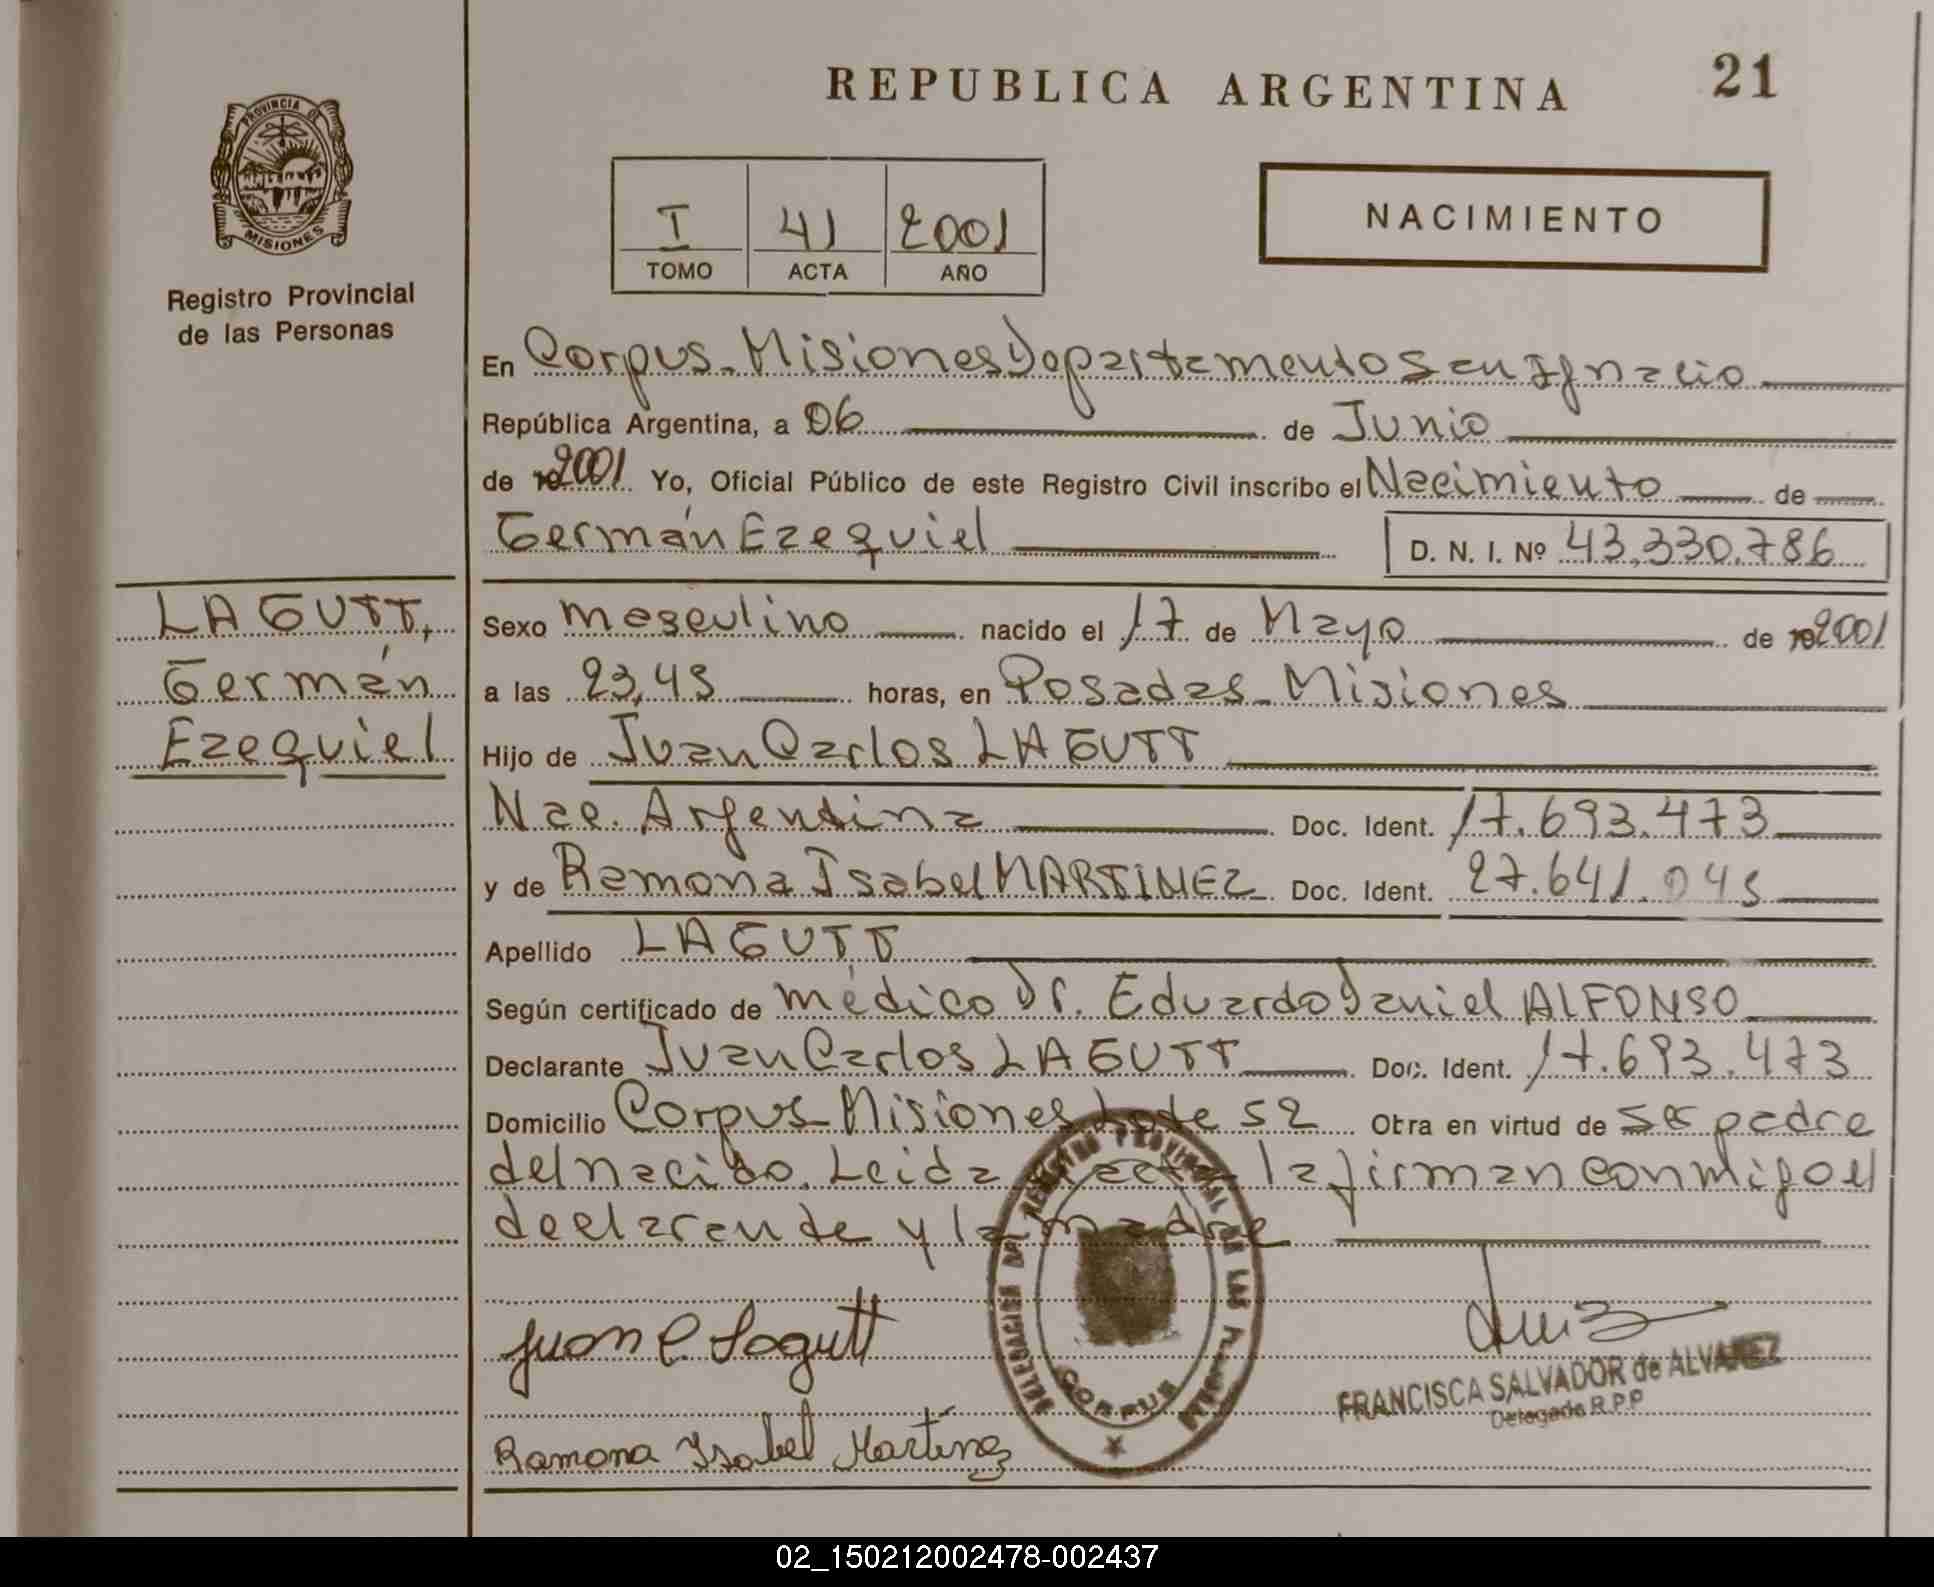 REPUBLICA ARGENTINA
21
PROVINCIA DE
MISIONES
Registro Provincial
de las Personas
I
41
2001
TOMO
ACTA
AÑO
NACIMIENTO
En Corpus-Misiones Departamento San Ignacio
República Argentina, a 06 de Junio
de 2001 Yo, Oficial Público de este Registro Civil inscribo el Nacimiento de
Germán Ezequiel
D. N. I. Nº 43.330.786
LAGUTT,
Germán
Ezequiel
Sexo masculino nacido el 17 de Mayo de 2001
a las 23,45 horas, en Posadas-Misiones
Hijo de Juan Carlos LAGUTT
Nac. Argentina Doc. Ident. 17.693.473
y de Ramona Isabel MARTINEZ Doc. Ident. 27.641.045
Apellido LAGUTT
Según certificado de médico Dr. Eduardo Daniel ALFONSO
Declarante Juan Carlos LAGUTT Doc. Ident. 17.693.473
Domicilio Corpus-Misiones Lote 52 Otra en virtud de ser padre
del nacido. Leida el acta la firman conmigo el
declarante y la madre
Juan C. Lagutt
Ramona Isabel Martinez
DELEGACION DEL REGISTRO PROVINCIAL DE LAS PERSONAS
CORPUS
MISIONES
FRANCISCA SALVADOR de ALVAREZ
Delegada R.P.P
02_150212002478-002437